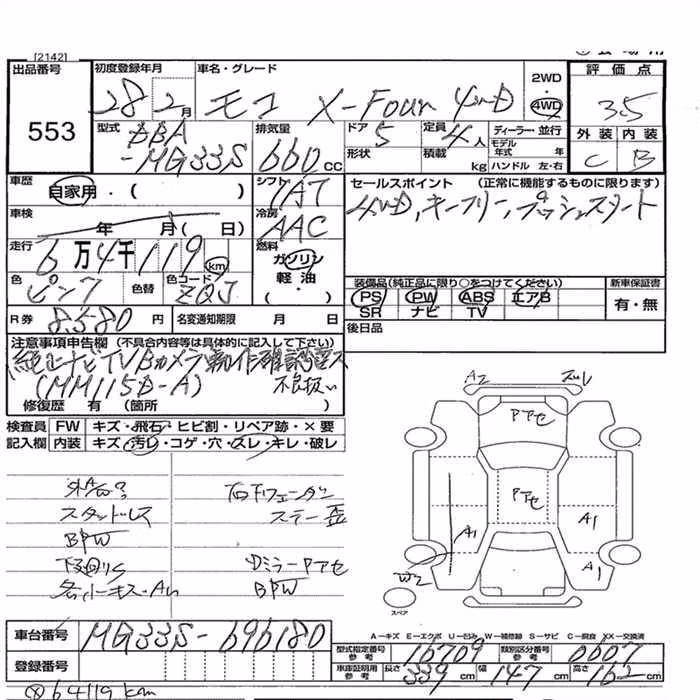 [2142]
出品番号
553
初度登録年月
28 2月
車名・グレード
モコ X-Four 4WD
2WD
・
4WD
評価点
3.5
外装 内装
C B
型式
DBA
-MG33S
排気量
660cc
ドア 5
形状
定員 4人
積載 kg
ディーラー・並行
モデル年式 年
ハンドル 左・右
車歴
自家用・( )
車検
年 月( 日)
走行
6万4千119km
色
ピンク
色替
色コード
ZQJ
R券 8580円
名変通知期限 月 日
シフト
IAT
冷房
AAC
燃料
ガソリン
軽油・
( )
セールスポイント (正常に機能するものに限ります)
4WD、キーフリー、プッシュスタート
装備品(純正品に限り○をつけてください)
PS PW ABS エアB
SR ナビ TV
新車保証書
有・無
後日品
注意事項申告欄 (不具合内容等は具体的に記入して下さい)
純正ナビTVBカメラ動作確認
(MM115D-A) 不良扱い
修復歴 有 (箇所 )
検査員 FW キズ・飛石・ヒビ割・リペア跡・×要
記入欄 内装 キズ・汚レ・コゲ・穴・スレ・キレ・破レ
スタッドレス
BPW
下廻りS
右Fフェンダー
ステー歪
Dミラー Pアセ
BPW
A2
Pアセ
Pアセ
A1
A1
A1
W2
スペア
A-キズ E-エクボ U-凹み W-補修跡 S-サビ C-腐食 XX-交換済
車台番号 MG33S-696180
登録番号
型式指定番号 参考 16709
類別区分番号 参考 0607
車庫証明用 参考 長さ 339cm 幅 147cm 高さ 162cm
64119km